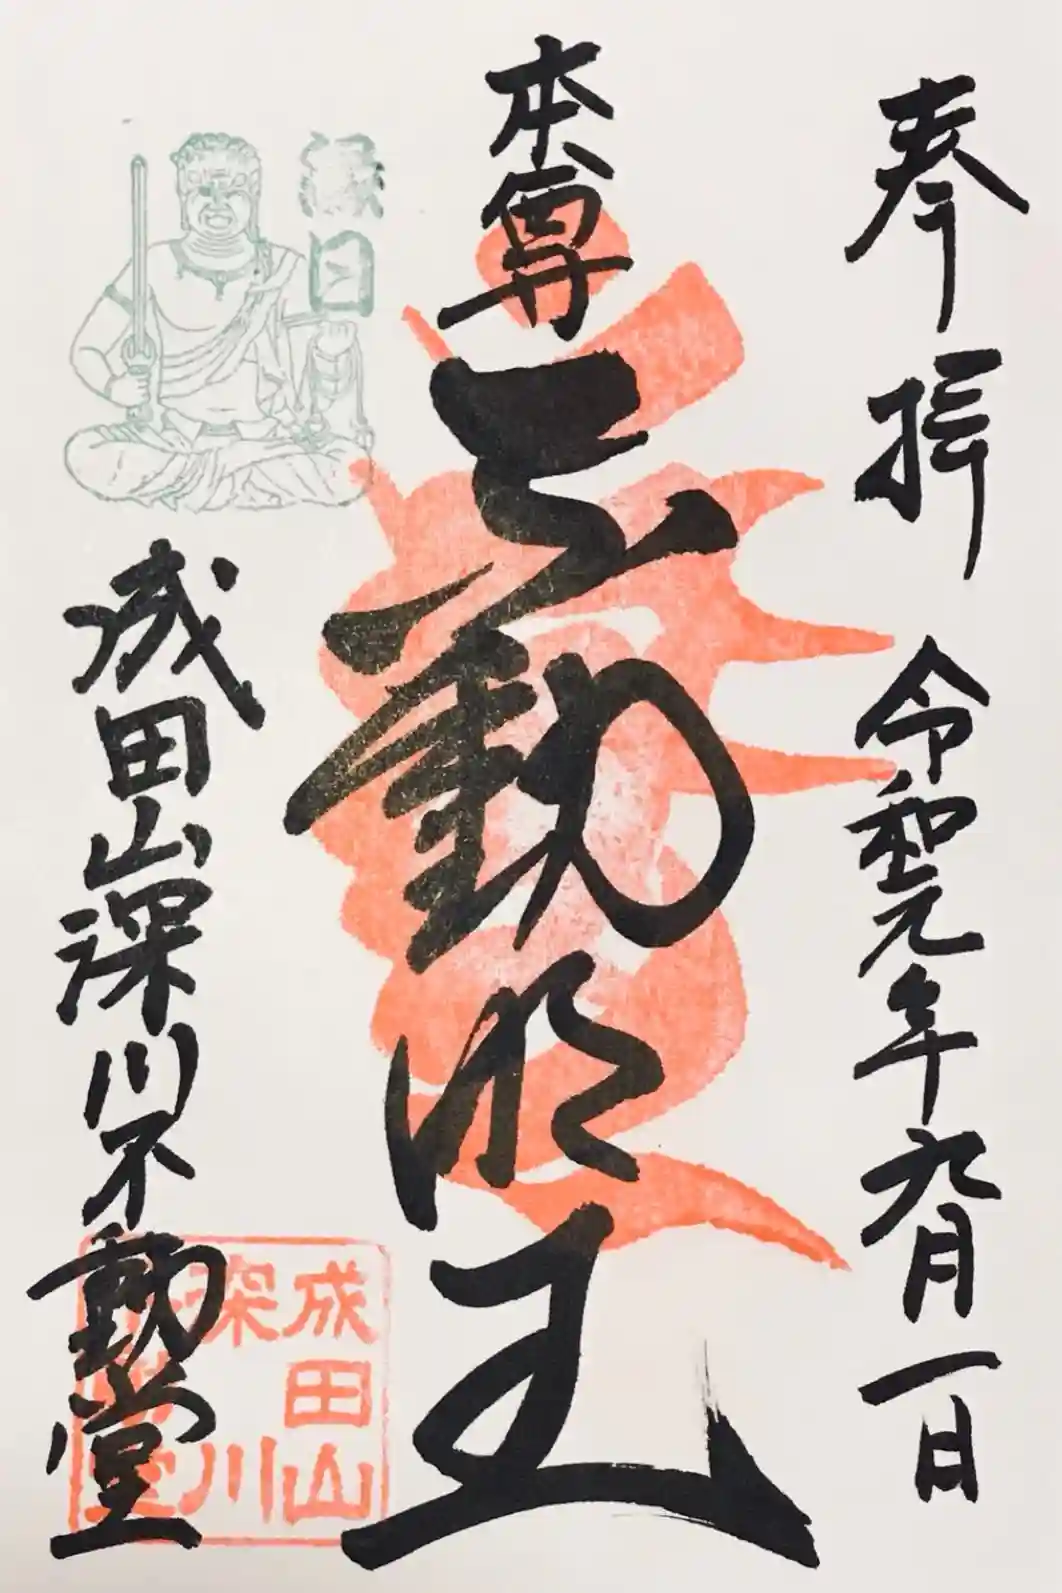 奉拝
令和元年九月一日
本尊
不動明王
縁日
成田山深川不動堂
成田山
深川
不動堂